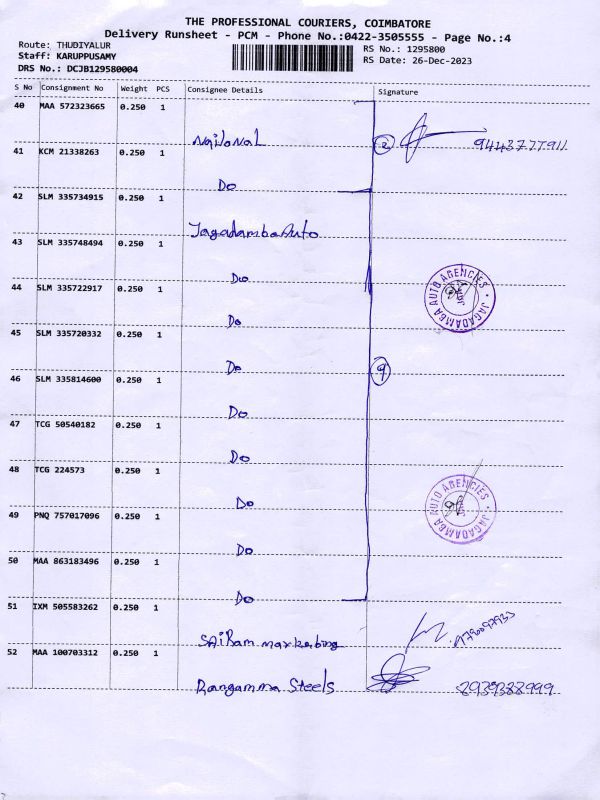 THE PROFESSIONAL COURIERS, COIMBATORE
Delivery Runsheet - PCM - Phone No.:0422-3505555 - Page No.:4
Route: THUDIYALUR
RS No.: 1295800
Staff: KARUPPUSAMY
RS Date: 26-Dec-2023
DRS No.: DCJB129580004
S No Consignment No Weight PCS Consignee Details Signature
40 MAA 572323665 0.250 1
National 2 9443777911
41 KCM 21338263 0.250 1
Do
42 SLM 335734915 0.250 1
Jagadamba Auto
43 SLM 335748494 0.250 1
Do
JAGADAMBA AUTO AGENCIES
44 SLM 335722917 0.250 1
Do
45 SLM 335720332 0.250 1
Do 9
46 SLM 335814600 0.250 1
Do
47 TCG 50540182 0.250 1
Do
48 TCG 224573 0.250 1
Do
JAGADAMBA AUTO AGENCIES
49 PNQ 757017096 0.250 1
Do
50 MAA 863183496 0.250 1
Do
51 IXM 505583262 0.250 1
SaiRam marketing
52 MAA 100703312 0.250 1
Rangamma Steels 8939388999